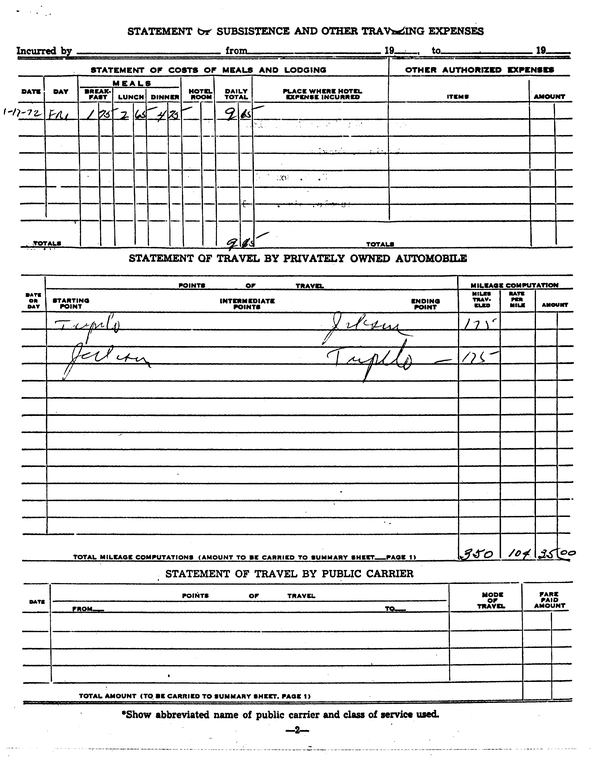 STATEMENT OF SUBSISTENCE AND OTHER TRAVELING EXPENSES
Incurred by from 19 , to 19
STATEMENT OF COSTS OF MEALS AND LODGING OTHER AUTHORIZED EXPENSES
MEALS
DATE DAY BREAK-FAST LUNCH DINNER HOTEL ROOM DAILY TOTAL PLACE WHERE HOTEL EXPENSE INCURRED ITEMS AMOUNT
1-17-72 FRI 1 75 2 65 4 75 9 65
TOTALS 9 65 TOTALS
STATEMENT OF TRAVEL BY PRIVATELY OWNED AUTOMOBILE
POINTS OF TRAVEL MILEAGE COMPUTATION
DATE OR DAY STARTING POINT INTERMEDIATE POINTS ENDING POINT MILES TRAV-ELED RATE PER MILE AMOUNT
Tupelo Jackson 175
Jackson Tupelo — 175
TOTAL MILEAGE COMPUTATIONS (AMOUNT TO BE CARRIED TO SUMMARY SHEET—PAGE 1) 350 10¢ 35 00
STATEMENT OF TRAVEL BY PUBLIC CARRIER
DATE POINTS OF TRAVEL MODE OF TRAVEL FARE PAID AMOUNT
FROM— TO—
TOTAL AMOUNT (TO BE CARRIED TO SUMMARY SHEET, PAGE 1)
*Show abbreviated name of public carrier and class of service used.
—2—